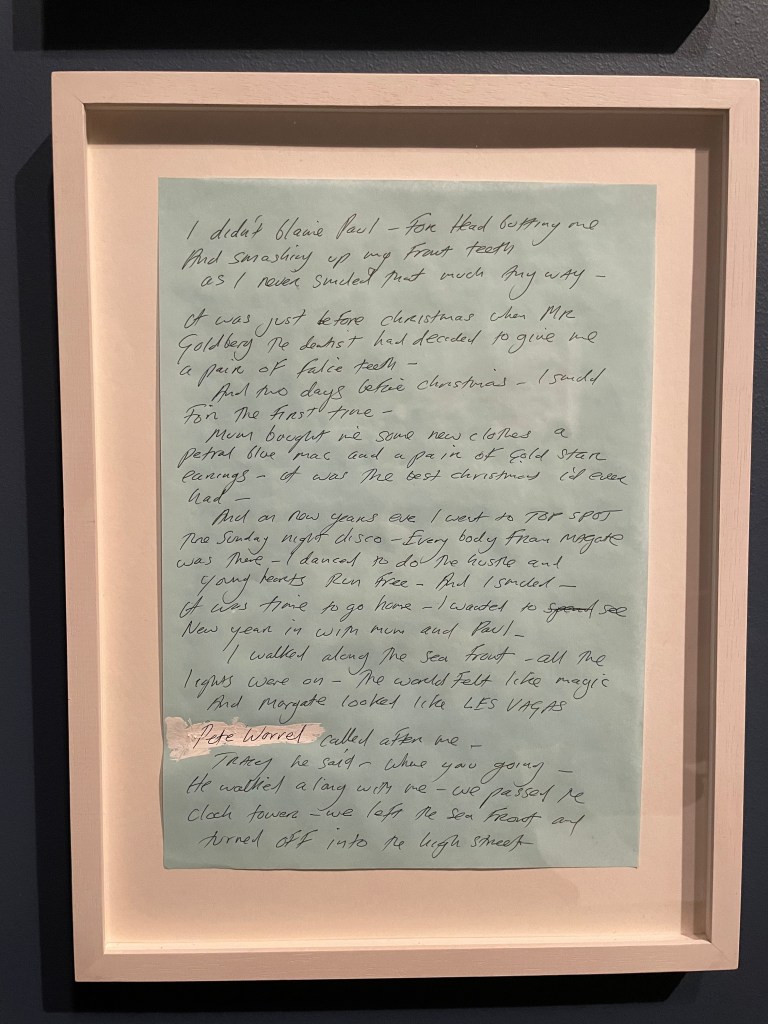 I didn't blame Paul – For Head butting me
And smashing up my Front teeth
as I never smiled that much Any way –
It was just before christmas when Mr
Goldberg the dentist had decided to give me
a pair of false teeth –
And two days before christmas – I smild
For the First time –
Mum bought me some new clothes a
petral blue mac and a pair of Gold star
earings – it was the best christmas i'd ever
had –
And on new years eve I went to TOP SPOT
the Sunday night disco – Every body From MAgate
was there – I danced to do the hustle and
young hearts Run Free – And I smiled –
It was time to go home – I wanted to spend see
New year in with mum and Paul –
I walked along the sea front – all the
lights were on – the world Felt like magic
And Margate looked like LES VAGAS
Pete Worrel called after me –
TRAcy he said – where you going –
He walked along with me – we passed the
Clock tower – we left the sea Front and
turned off into the high street